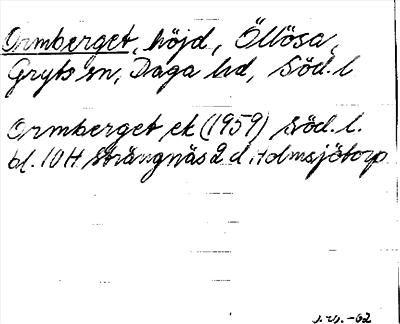 Ormberget, höjd, Öllösa,
Gryts sn, Daga hd, Söd. l.
Ormberget ek (1959) Söd. l.
bl. 10 H Strängnäs 2 d. Holmsjötorp
J. W. -62